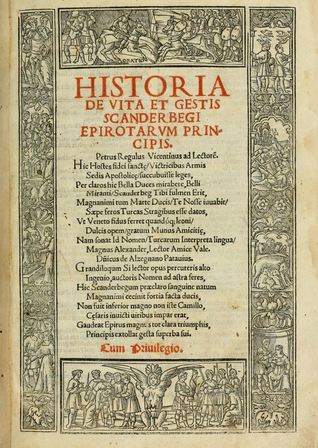 HISTORIA
DE VITA ET GESTIS
SCANDERBEGI
EPIROTARVM PRIN-
CIPIS.
Petrus Regulus Vicentinus ad Lectorē.
Hic Hostes fidei sanctę/Victricibus Armis
Sedis Apostolicę/succubuisse leges,
Per claros hic Bella Duces mirabere, Belli
Miranti/Scanderbeg Tibi fulmen Erit,
Magnanimi tum Marte Ducis/Te Nosse iuuabit/
Sæpe feros Turcas Stragibus esse datos,
Vt Veneto fidus ferret quandoq; leoni/
Dulcis opem/gratum Munus Amicitię,
Nam sonat Id Nomen/Turcarum Interpreta lingua/
Magnus Alexander, Lector Amice Vale.
de Alzegnano Patauius.
Grandiloquum Si lector opus percureris alto
Ingenio, auctoris Nomen ad astra feres,
Hic Scanderbegum præclaro sanguine natum
Magnanimi cecinit fortia facta ducis,
Non fuit inferior magno non iste Camillo,
Cęsaris inuicti uiribus impar erat,
Gaudeat Epirus magnis tot clara triumphis,
Principis extollat gesta superba sui.
Cum Priuilegio.